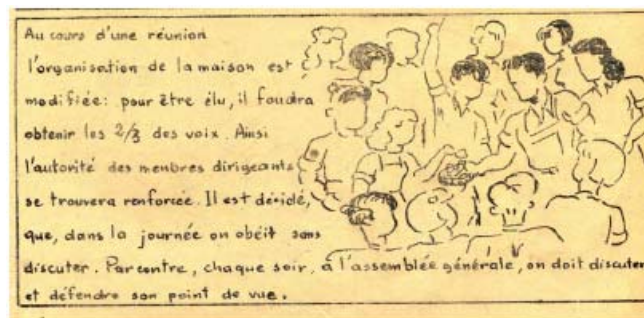 Au cours d'une réunion
l'organisation de la maison est
modifiée: pour être élu, il faudra
obtenir les 2/3 des voix. Ainsi
l'autorité des menbres dirigeants
se trouvera renforcée. Il est décidé,
que, dans la journée on obéit sans
discuter. Par contre, chaque soir, à l'assemblée générale, on doit discuter
et défendre son point de vue.